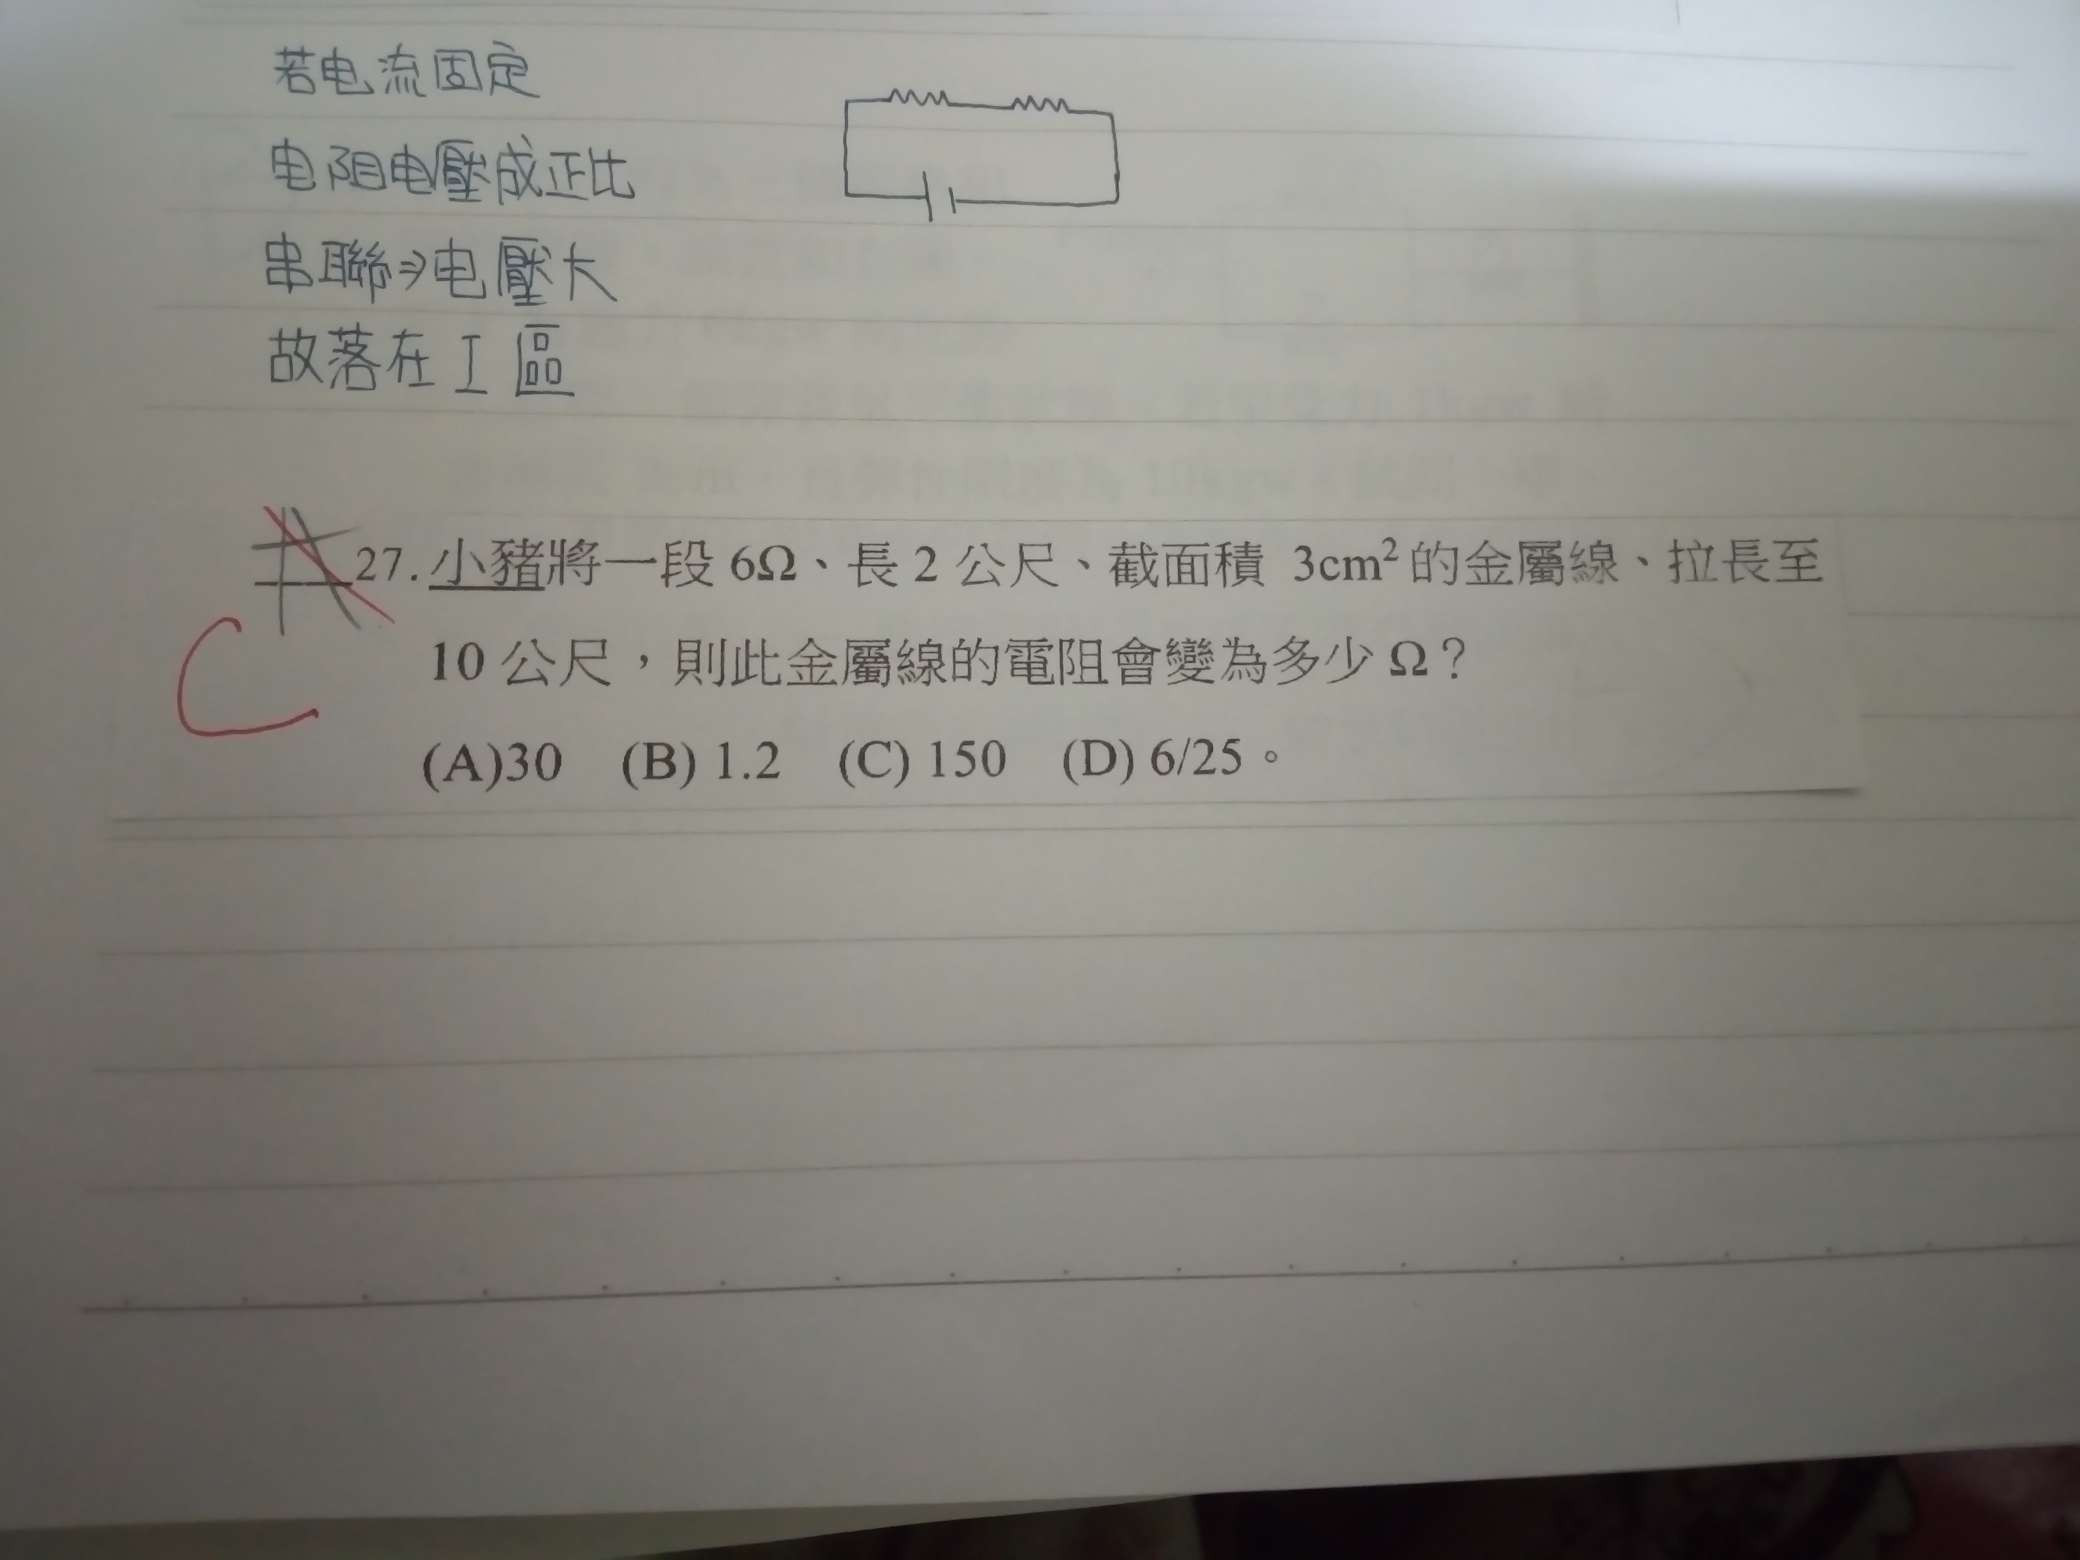 若电流固定
电阻电壓成正比
串聯⇒电壓大
故落在I區
27. 小豬將一段 6Ω、長 2 公尺、截面積 3cm²的金屬線、拉長至
C
10 公尺，則此金屬線的電阻會變為多少 Ω？
(A)30 (B) 1.2 (C) 150 (D) 6/25。